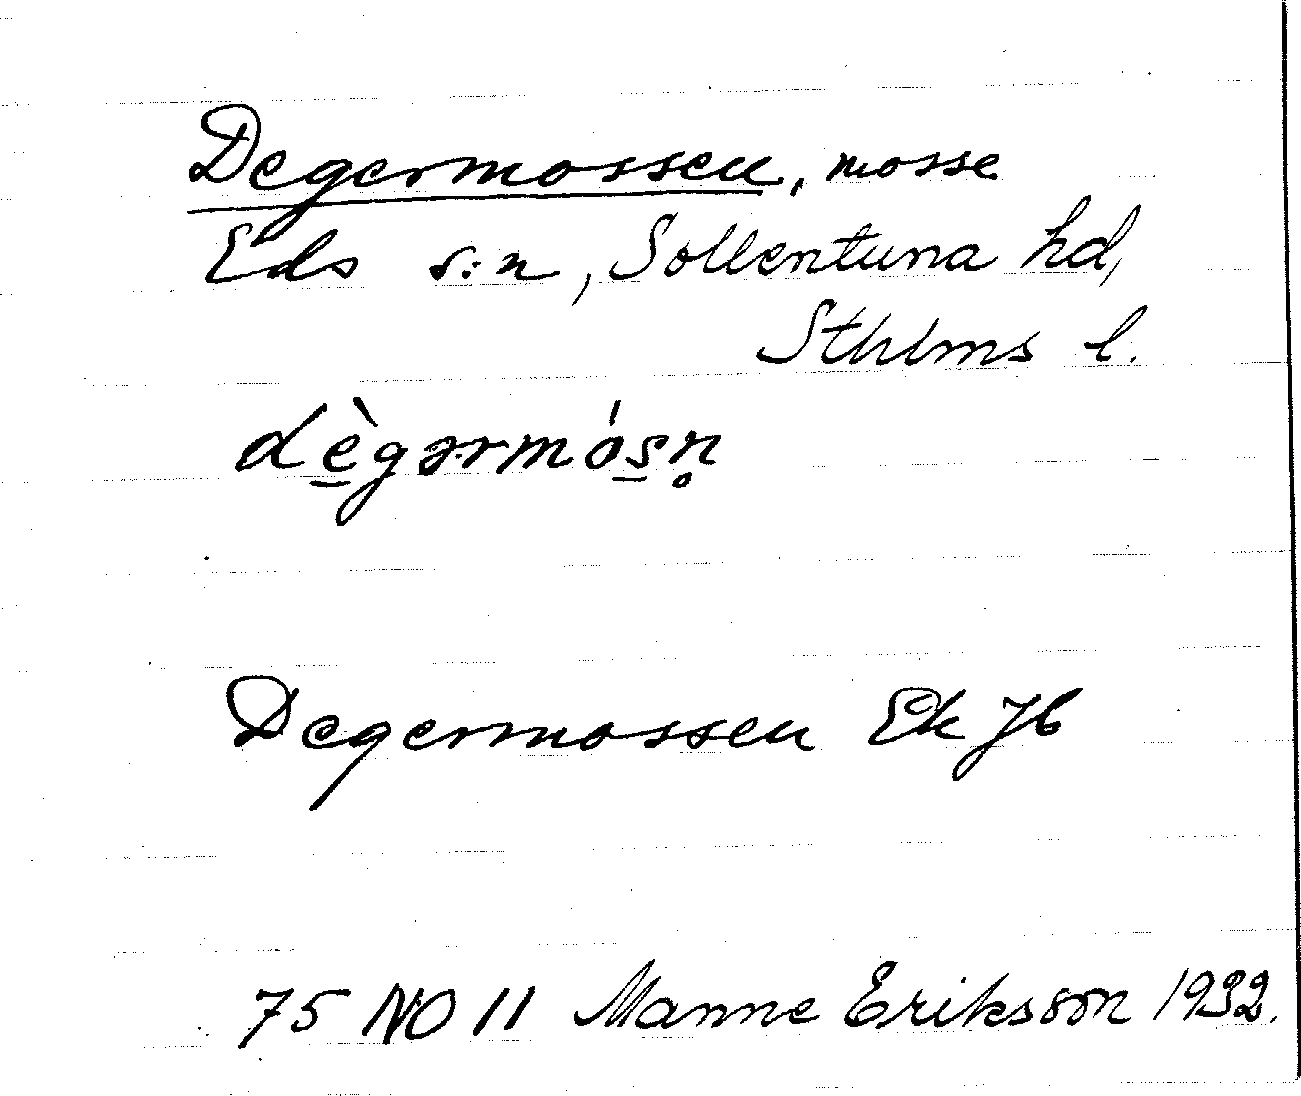 Degermossen, mosse
Eds s:n, Sollentuna hd,
Sthlms l.
dè̱gərmós̱n̥
Degermossen Ek Hb
75 NO 11 Manne Eriksson 1932.